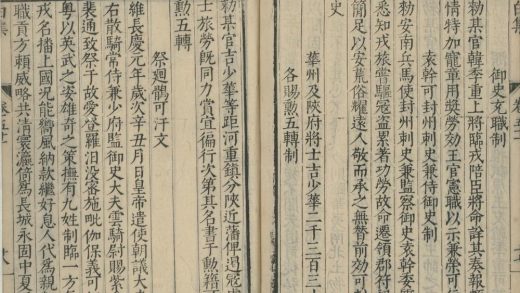 御史充職制
勑某官韓季重上將臨戎陪臣將命詳其奏報
情特加寵章用奬勞効王官憲職以示兼榮可
袁幹可封州刺史兼侍御史制
勑安南兵馬使封州刺史兼監察御史袁幹委
悉知戎旅嘗驅寇盜累著功勞故命遷領郡符
簡足以安荒俗耀遠人敬而承之無替前効可
史
華州及陝府將士吉少華二千三百三
各賜勲五轉制
勑某官吉少華等距河重鎮分陝近藩俾遏寇
士旅勞旣同力賞宜徧行次第其名書于勲籍
勲五轉
祭廻鶻可汗文
維長慶元年歲次辛丑月日皇帝遣使朝議大
右散騎常侍兼少府監御史大夫雲騎尉賜紫
裴通致祭于故愛登羅汨没密施毗伽保義可
粵以英武之姿雄奇之策撫有九姓制臨一方
戎名播上國況能嚮風納款繼好息人代爲親
職貢方賴威略共清寰瀛倚爲長城永固中夏
白集